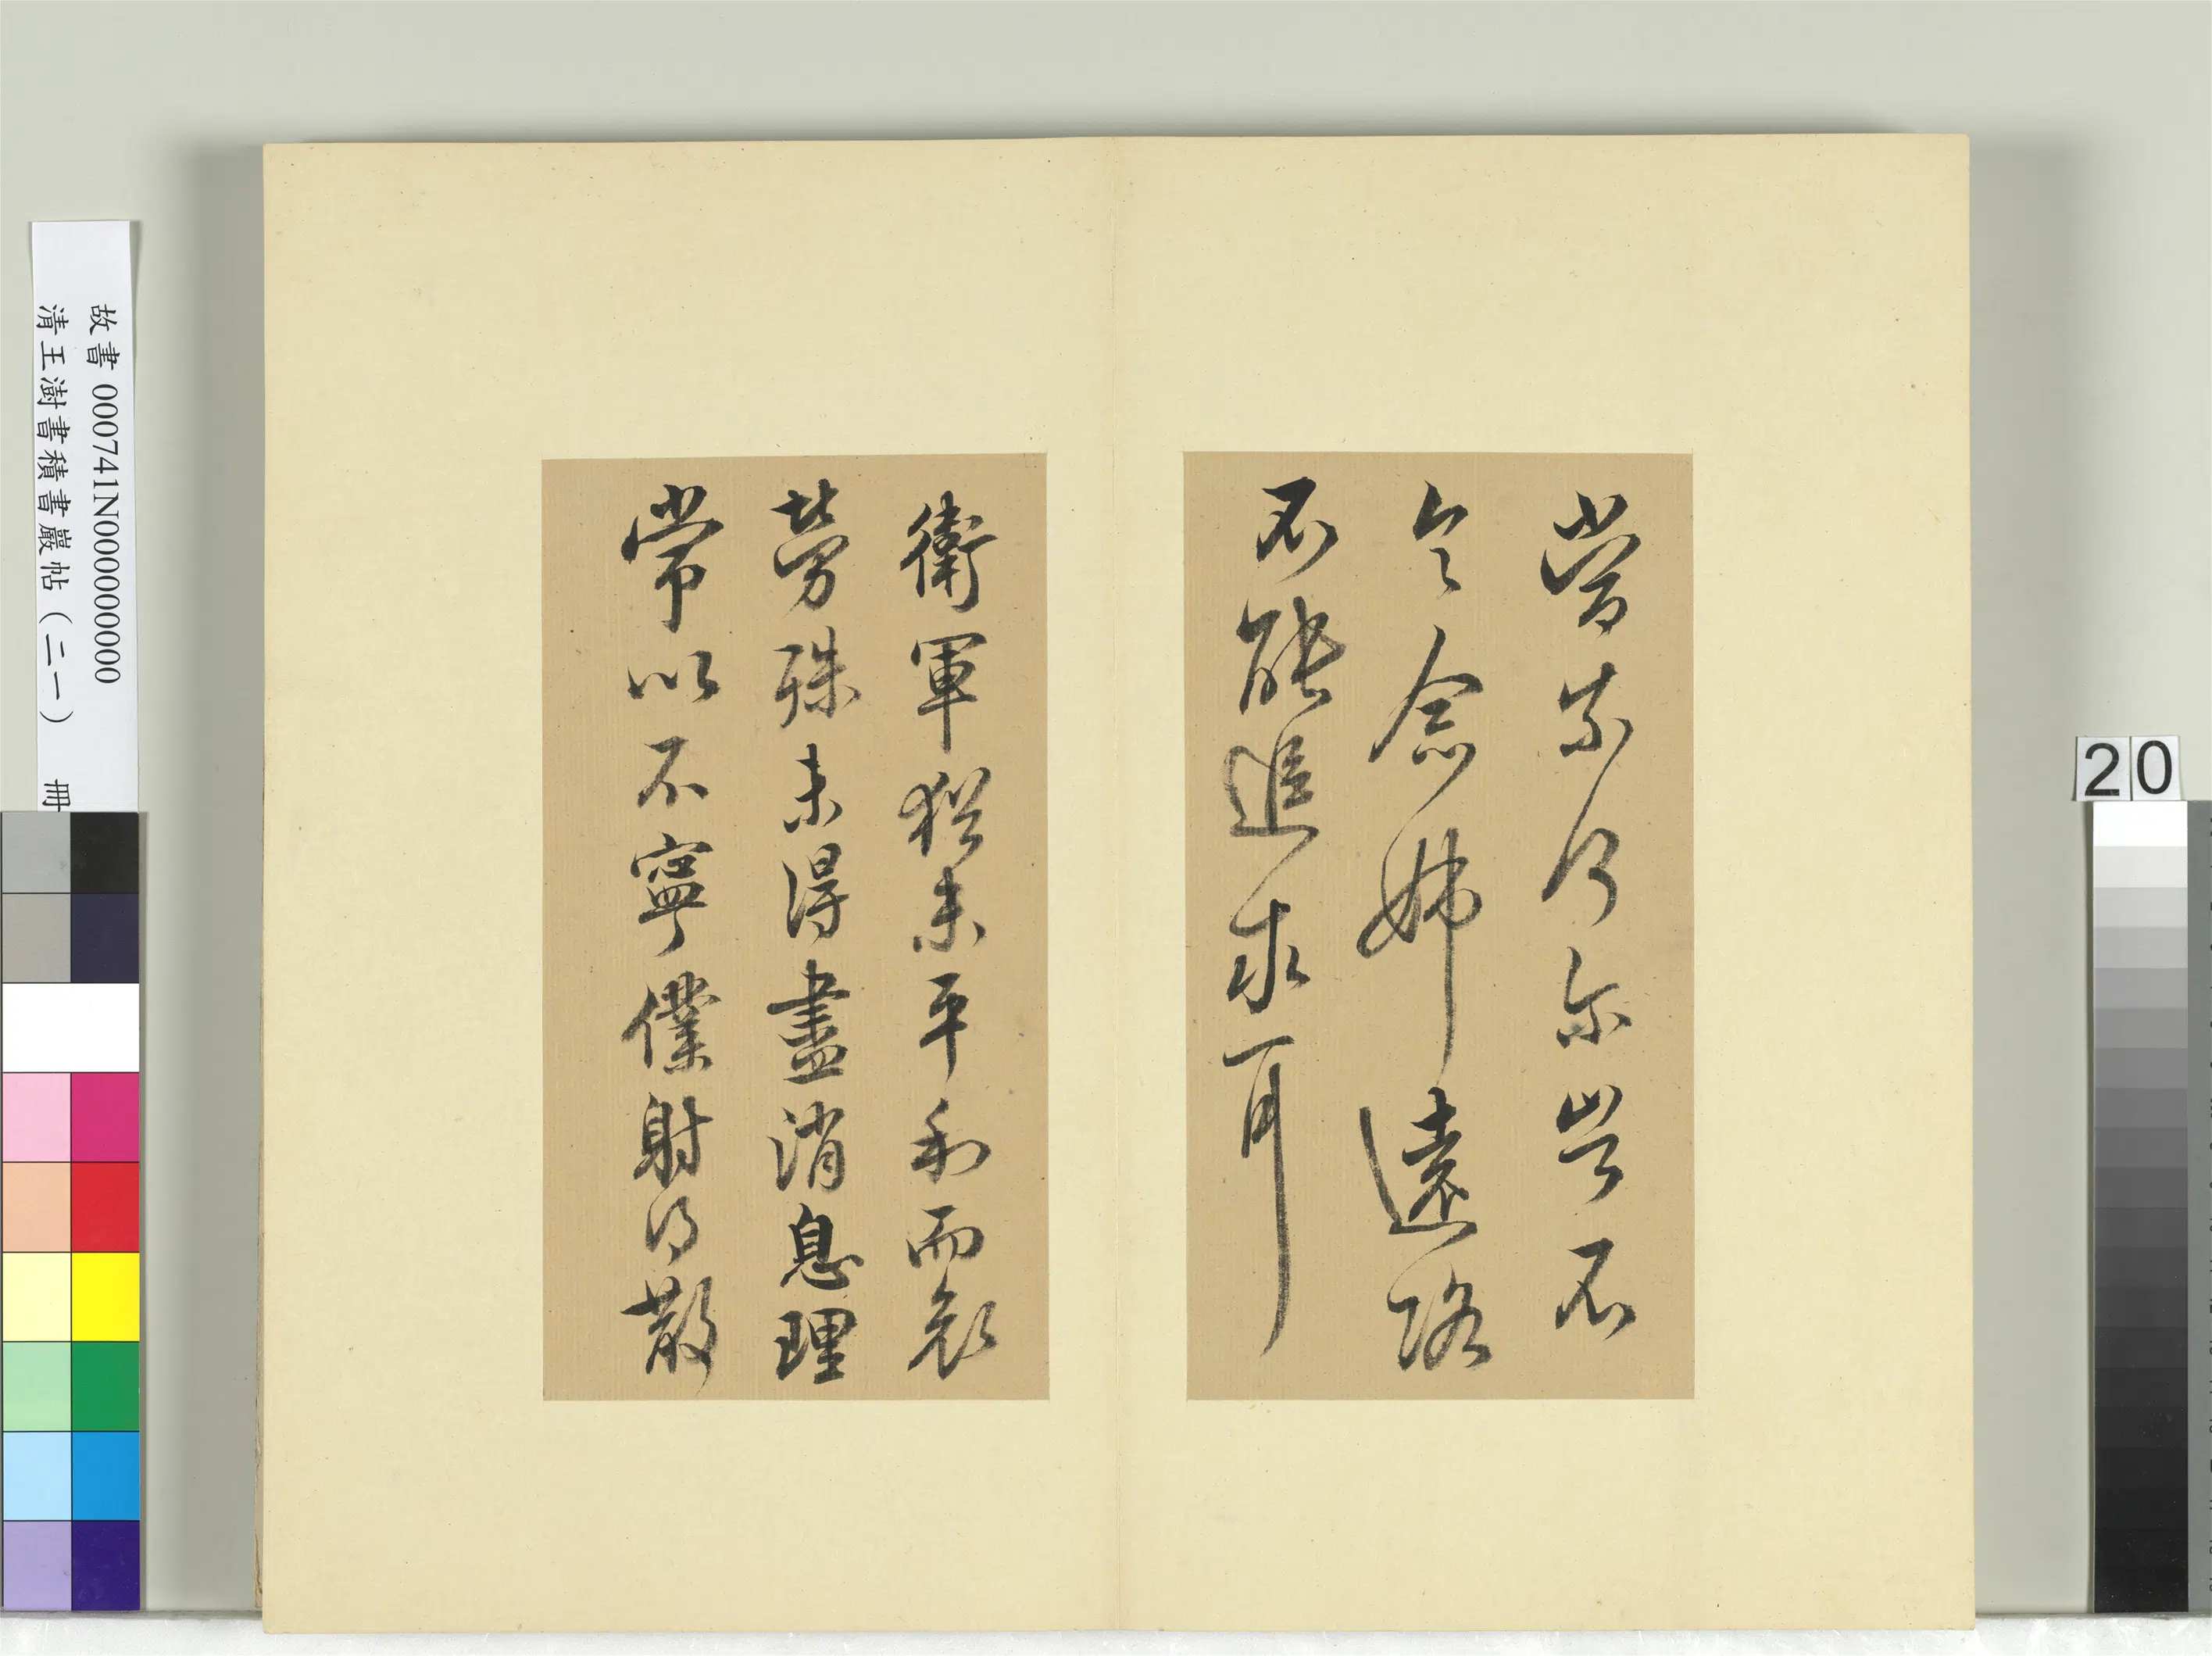 尔豈不
令念姊遠路
不能追求耳
衛軍猶未平和而哀
勞殊未得盡消息理
常以不寧僕射得散
故書 000741N000000000
清王澍書積書巖帖（二一） 冊
20